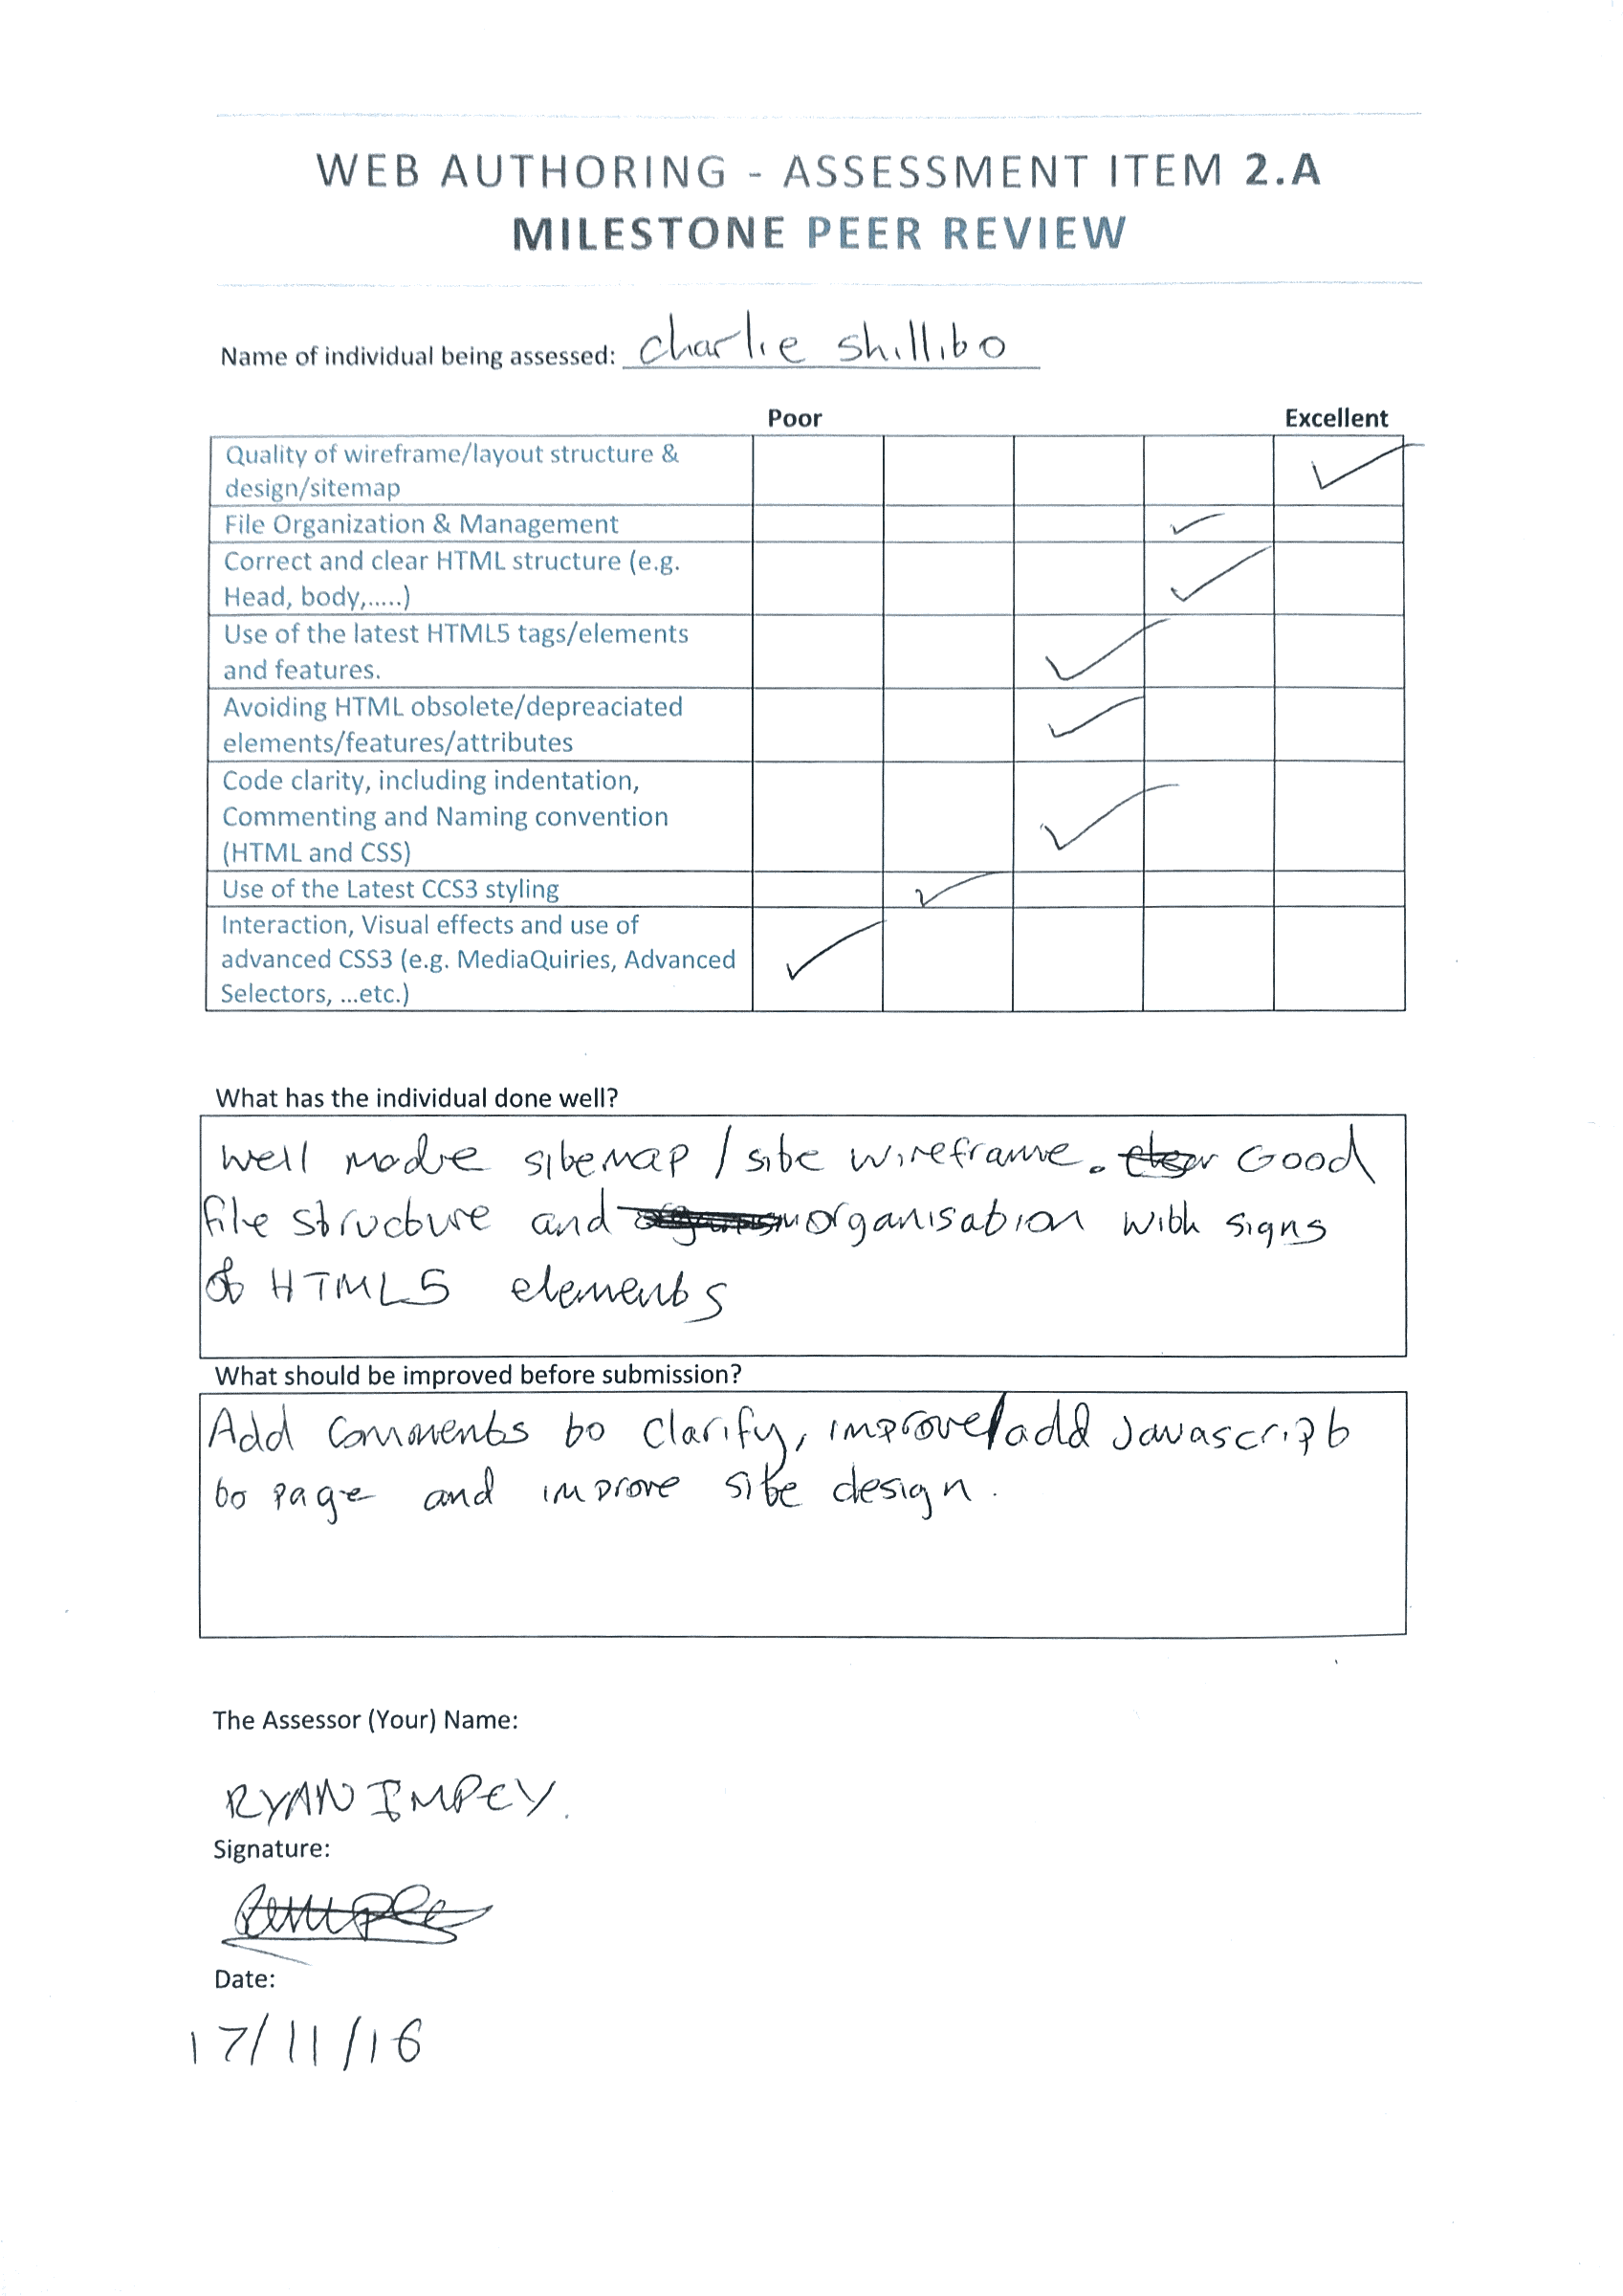 WEB AUTHORING - ASSESSMENT ITEM 2.A
MILESTONE PEER REVIEW
Name of individual being assessed: Charlie Shillibo
Poor Excellent
Quality of wireframe/layout structure &
design/sitemap
File Organization & Management
Correct and clear HTML structure (e.g.
Head, body,.....)
Use of the latest HTML5 tags/elements
and features.
Avoiding HTML obsolete/depreaciated
elements/features/attributes
Code clarity, including indentation,
Commenting and Naming convention
(HTML and CSS)
Use of the Latest CCS3 styling
Interaction, Visual effects and use of
advanced CSS3 (e.g. MediaQuiries, Advanced
Selectors, ...etc.)
What has the individual done well?
Well made sitemap / site wireframe. Good
file structure and organisation with signs
of HTML5 elements
What should be improved before submission?
Add comments to clarify, improve/add Javascript
to page and improve site design.
The Assessor (Your) Name:
RYAN IMPEY.
Signature:
Date:
17/11/16